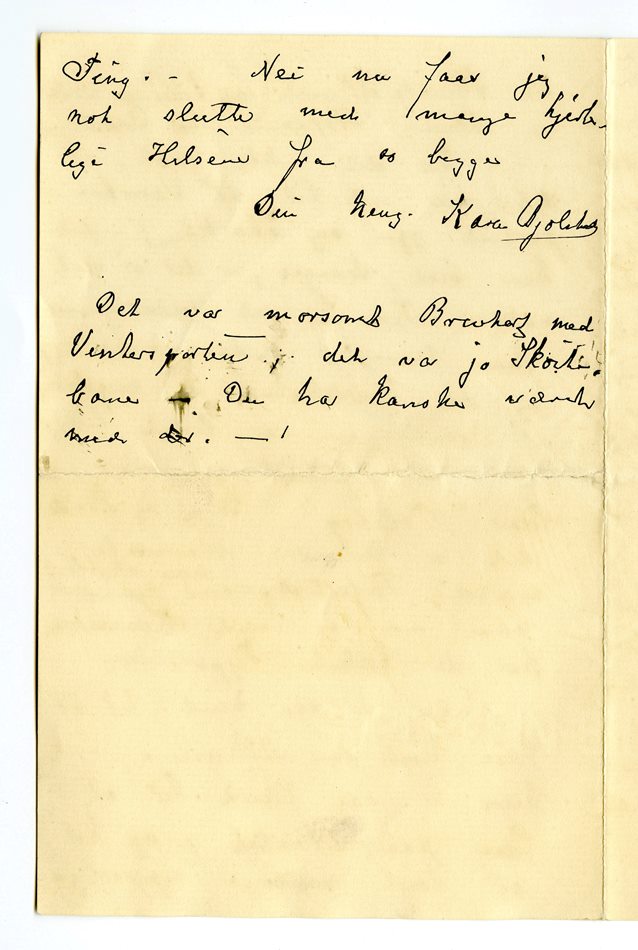 Ting. - Nei nu faar jeg
nok slutte med mange hjerte-
lige Hilsener fra os begge
Din heng. Kara
Det var morsomt Brevkort med
Vintersporten, det var jo Skøite-
bane – Du har kanske været
med der. –!